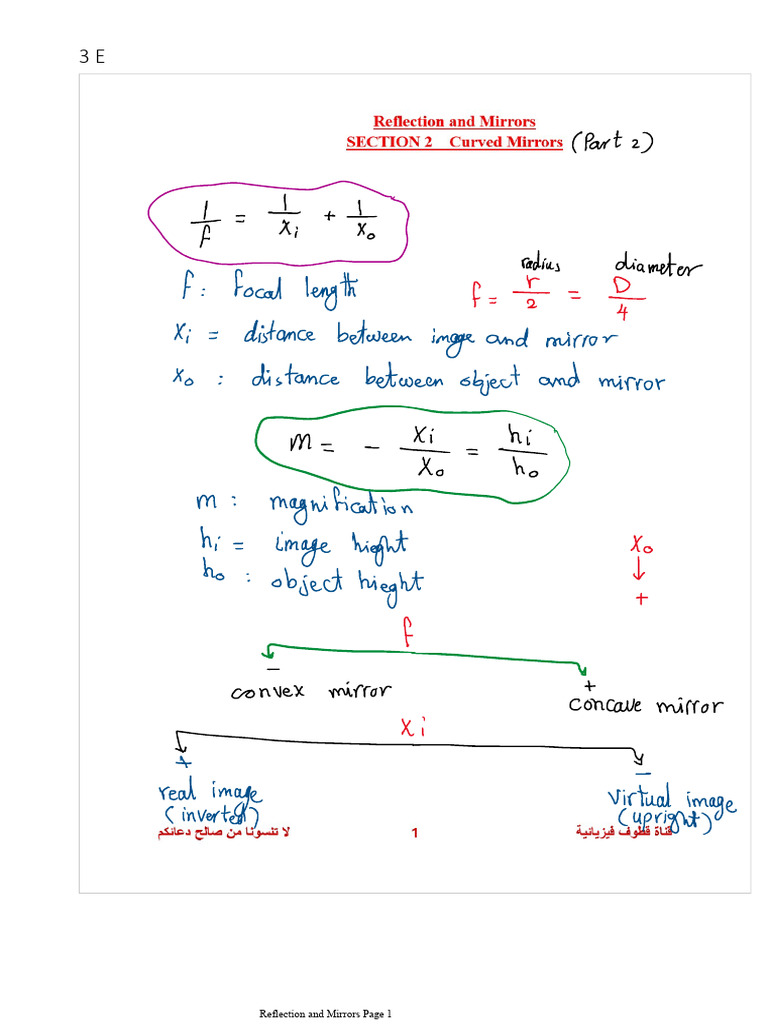 3 E
Reflection and Mirrors
SECTION 2 Curved Mirrors (Part 2)
1/f = 1/xi + 1/xo
radius diameter
f: focal length f = r/2 = D/4
xi = distance between image and mirror
xo : distance between object and mirror
m = - xi/xo = hi/ho
m : magnification
hi = image hight
ho : object hieght
xo
↓
+
f
- +
convex mirror concave mirror
xi
+ -
real image virtual image
(inverted) (upright)
لا تنسونا من صالح دعائكم 1 قناة قطوف فيزيائية
Reflection and Mirrors Page 1